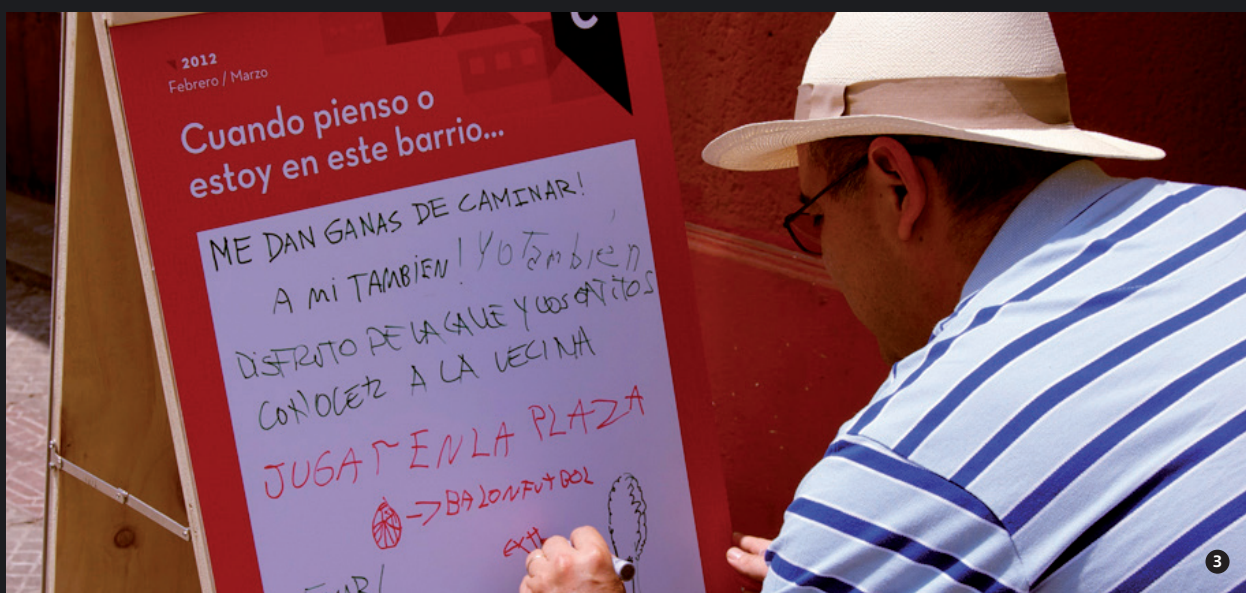 C
2012
Febrero / Marzo
Cuando pienso o
estoy en este barrio...
ME DAN GANAS DE CAMINAR!
A Mi TAMBIEN! Yo También
DiSFRUTO DE LA CALLE Y LOS
CONOCER A LA VECINA
JUGAr EN LA PLAZA
-> BALON FUTBOL
3